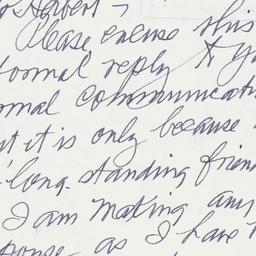 Herbert -
Please excuse this
formal reply to y
ormal communicati
ut it is only because
long-standing frien
I am making any
ponse - as I have